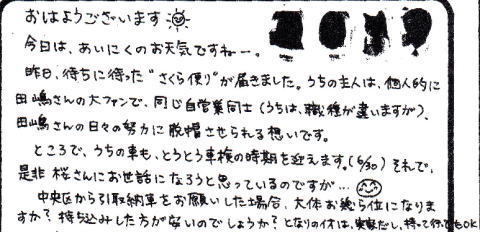 おはようございます
今日は、あいにくのお天気ですねー。
昨日、待ちに待った"さくら便り"が届きました。うちの主人は、個人的に
田嶋さんの大ファンで、同じ自営業同士(うちは、職種が違いますが)、
田嶋さんの日々の努力に脱帽させられる想いです。
ところで、うちの車も、とうとう車検の時期を迎えます。(6/30) それで、
是非 桜さんにお世話になろうと思っているのですが…
中央区から引取納車をお願いした場合、大体お幾ら位になりま
すか? 持ち込みした方が安いのでしょうか? となりのイオは、実家だし、持って行てもOK